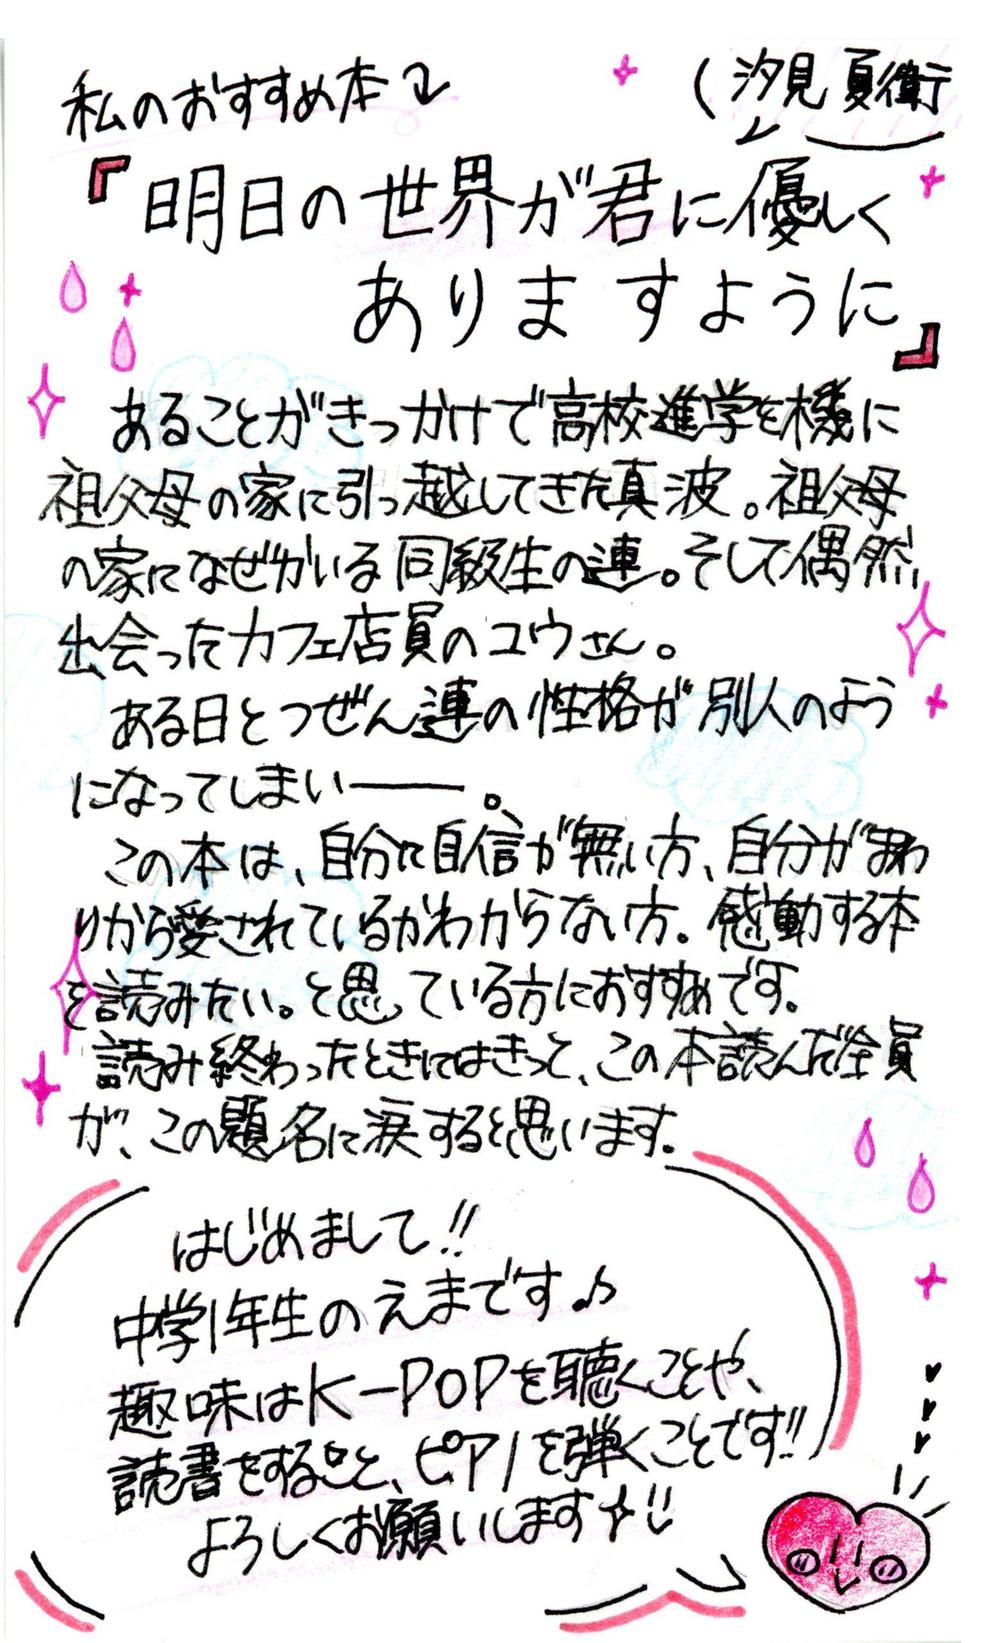 私のおすすめ本
(汐見 夏衛
『明日の世界が君に優しく
ありますように』
あることがきっかけで高校進学を機に
祖父母の家に引っ越してきた真波。祖父母
の家になぜかいる同級生の連。そして偶然、
出会ったカフェ店員のユウさん。
ある日とつぜん連の性格が別人のよう
になってしまい――。
この本は、自分に自信が無い方、自分がまわ
りから愛されているかわからない方。感動する本
を読みたい。と思っている方におすすめです。
読み終わったときにはきっと、この本読んだ全員
が、この題名に涙すると思います。
はじめまして!!
中学1年生のえまです♪
趣味はK-POPを聴くことや、
読書をすること、ピアノを弾くことです!!
よろしくお願いします☆!!